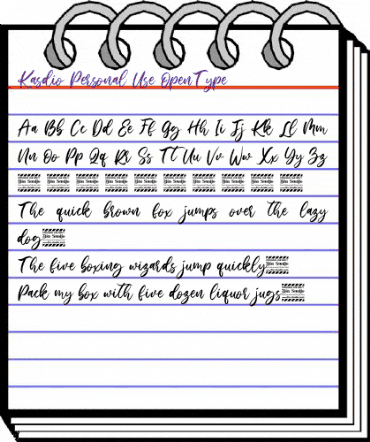 Kasdio Personal Use OpenType
Aa Bb Cc Dd Ee Ff Gg Hh Ii Jj Kk Ll Mm
Nn Oo Pp Qq Rr Ss Tt Uu Vv Ww Xx Yy Zz
The quick brown fox jumps over the lazy
dog
The five boxing wizards jump quickly
Pack my box with five dozen liquor jugs